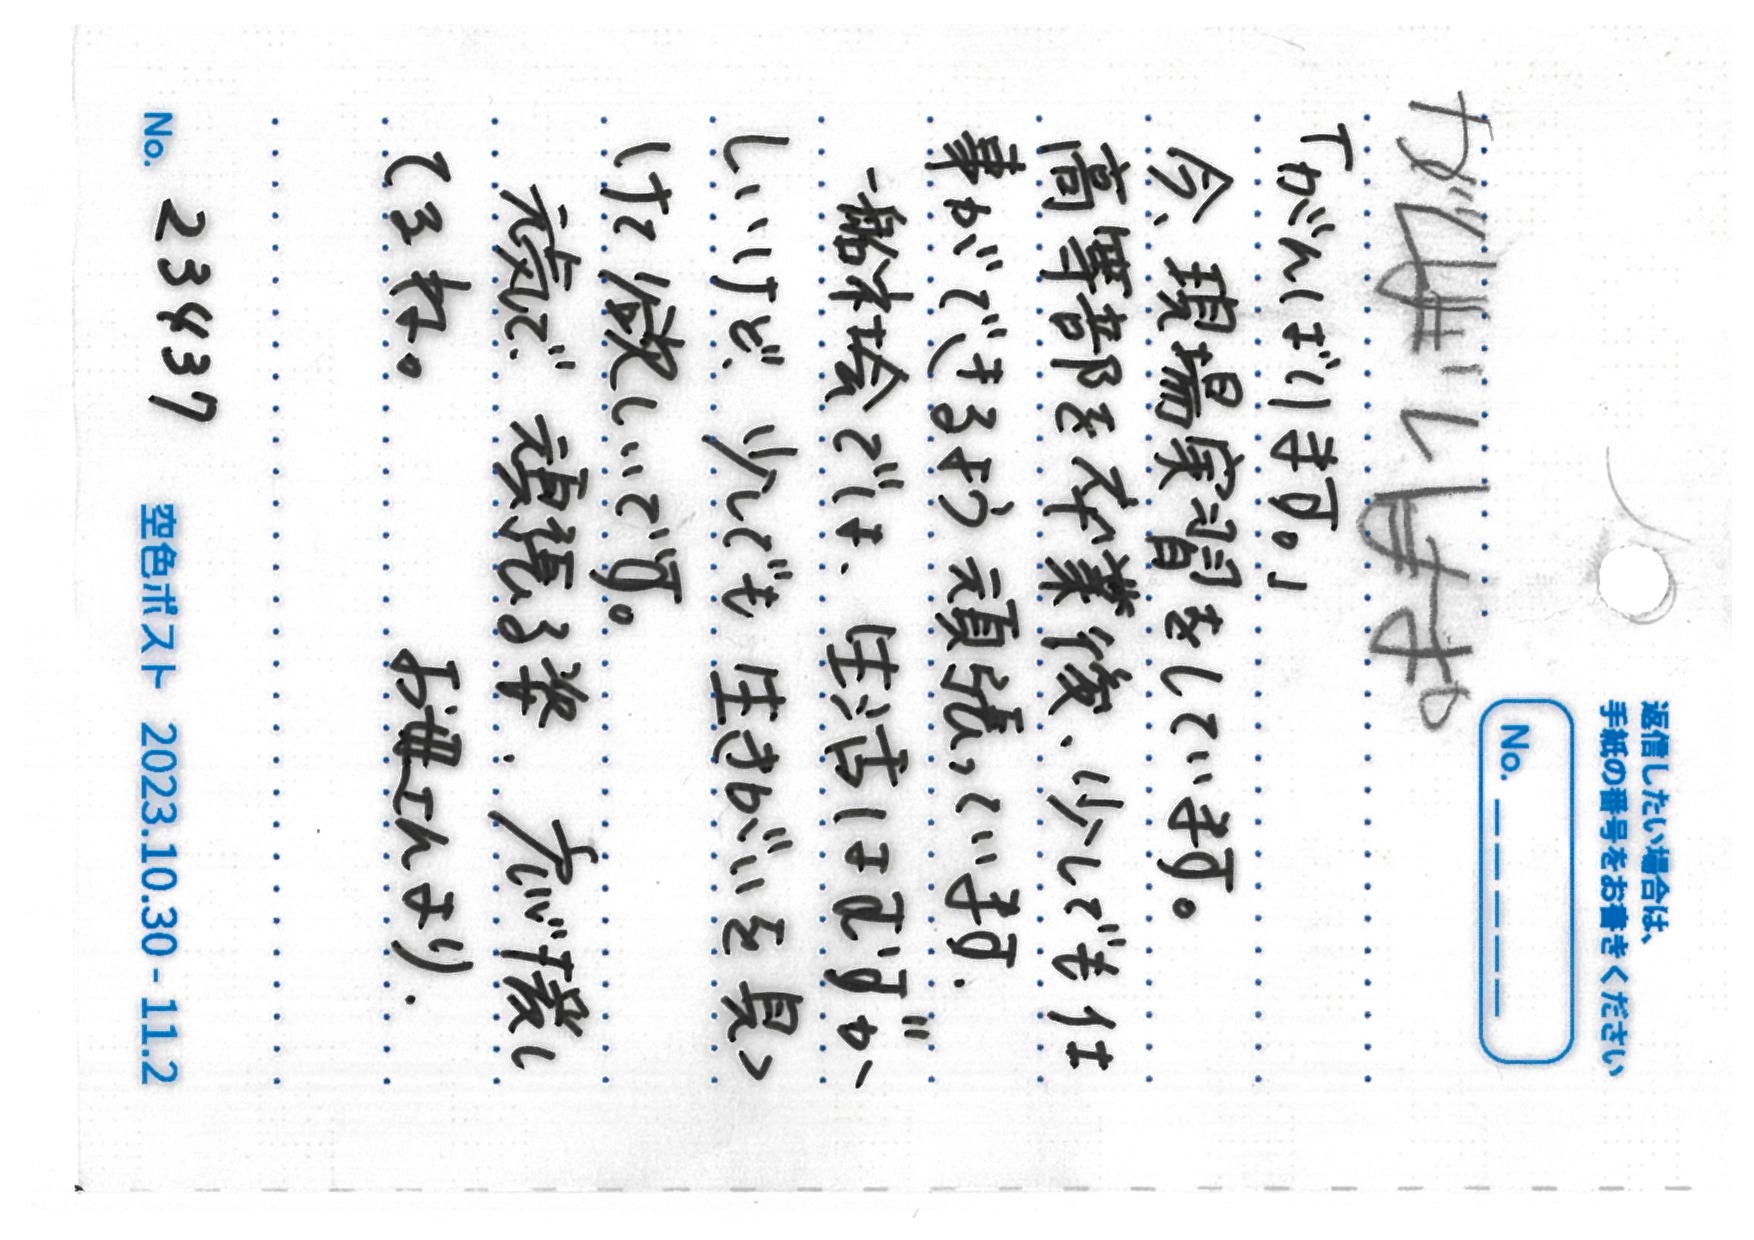 返信したい場合は、
手紙の番号をお書きください
No. _ _ _ _ _
「がんばります。」
今、現場実習をしています。
高等部を卒業後、少しでも仕
事ができるよう頑張っています.
一般社会では、生活はむずか
しいけど、少しでも生きがいを見つ
けて欲しいです。
元気で、頑張る姿、応援し
てるね。 お母さんより.
No. 23437 空色ポスト 2023.10.30 - 11.2